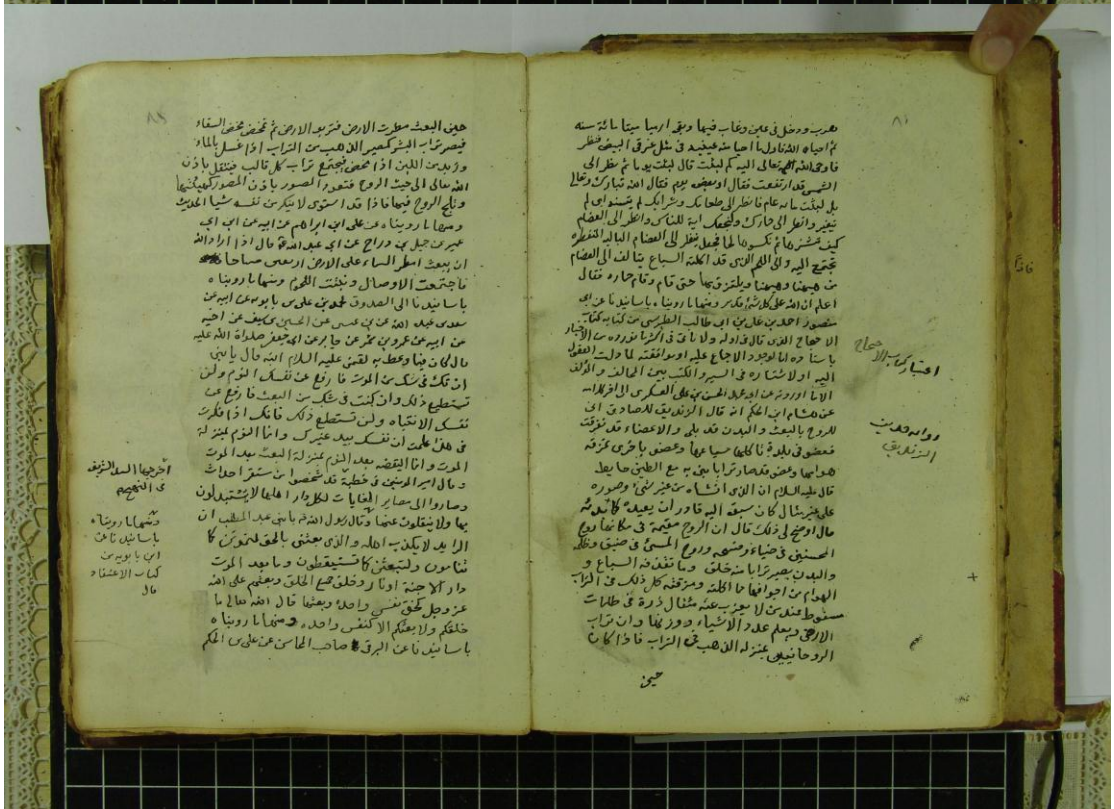 هرب ودخل في عين وغاب فيها وبقي ارميا ميتا مائة سنه
ثم احياه الله فاول ما احيا منه عينيه في مثل غرقئ البيض فنظر
فاوحى الله تعالى اليه كم لبثت قال لبثت يوما ثم نظر الى
الشمس قد ارتفعت فقال او بعض يوم فقال الله تبارك وتعالى
بل لبثت مائة عام فانظر الى طعامك وشرابك لم يتسنه اى لم
يتغير وانظر الى حمارك ولنجعلك اية للناس وانظر الى العضام
كيف ننشزها ثم نكسوها لحما فجعل ينظر الى العضام الباليه المتفطره
تجتمع اليه والى اللحم الذى قد اكلته السباع يتالف الى العضام
من هيهنا وهيهنا ويلتزق بها حتى قام وقام حماره فقال
اعلم ان الله على كل شئ قدير ومنها ما رويناه باسانيدنا عن ابى
منصور احمد بن على بن ابى طالب الطبرسى من كتابه كتاب
الاحتجاج الذى قال فى اوله ولا ناتى فى اكثر ما نورده من الاخبار
باسناده اما لوجود الاجماع عليه او موافقته لما دلت العقول
اليه او لاشتهاره فى السير والكتب بين المخالف والمؤلف
الا ما اوردته عن ابى محمد الحسن بن على العسكرى الى اخر كلامه
عن هشام ابن الحكم انه قال الزنديق للصادق انى
للروح بالبعث والبدن قد بلى والاعضاء قد تفرقت
فعضو فى بلدة تاكلها سباعها وعضو باخرى تمزقه
هوامها وعضو قد صار ترابا بنى به مع الطين حايط
قال عليه السلام ان الذى انشاه من غير شئ وصوره
على غير مثال كان سبق اليه قادر ان يعيده كما بدئه
قال اوضح لى ذلك قال ان الروح مقيمة فى مكانها روح
المحسنين فى ضياء وفسحه وروح المسئ فى ضيق وظلمه
والبدن يصير ترابا منه خلق وما تقذف به السباع و
الهوام من اجوافها مما اكلته ومزقته كل ذلك فى التراب
محفوظ عند من لا يعزب عنه مثقال ذرة فى ظلمات
الارض ويعلم عدد الاشياء ووزنها وان تراب
الروحانيين بمنزلة الذهب فى التراب فاذا كان
حين
اعتبار كتاب الاحتجاج
رواية حديث
الزنديق
حين البعث مطرت الارض فتربو الارض ثم تمخض مخض السقاء
فيصير تراب البشر كمصير الذهب من التراب اذا غسل بالماء
وزبد من اللبن اذا مخض فيجتمع تراب كل قالب فينتقل باذن
الله تعالى الى حيث الروح فتعود الصور باذن المصور كهيئتها
وتلج الروح فيها فاذا قد استوى لا ينكر من نفسه شيا الحديث
ومنها ما رويناه عن على ابن ابراهيم عن ابيه عن ابن ابى
عمير عن جميل بن دراج عن ابى عبد الله قال اذا اراد الله
ان يبعث امطر السماء على الارض اربعين صباحا
فاجتمعت الاوصال ونبتت اللحوم ومنها ما رويناه
باسانيدنا الى الصدوق محمد بن على بن بابويه عن ابيه عن
سعد بن عبد الله عن بن عيسى عن الحسين بن سيف عن اخيه
عن ابيه عن عمرو بن شمر عن جابر عن ابى جعفر صلواة الله عليه
قال كان فيما وعظ به لقمن عليه السلام ابنه قال يا بنى
ان تك فى شك من الموت فارفع عن نفسك النوم ولن
تستطيع ذلك وان كنت فى شك من البعث فارفع عن
نفسك الانتباه ولن تستطيع ذلك فانك اذا فكرت
فى هذا علمت ان نفسك بيد غيرك وانما النوم بمنزلة
الموت وانما اليقضه بعد النوم بمنزلة البعث بعد الموت
وقال امير المومنين فى خطبة قد شخصوا من مستقر الاجداث
وصاروا الى مصاير الغايات لكل دار اهلها لا يستبدلون
بها ولا ينقلون عنها وقال رسول الله يا بنى عبد المطلب ان
الرايد لا يكذب اهله والذى بعثنى بالحق لتموتن كما
تنامون ولتبعثن كما تستيقظون وما بعد الموت
دار الا جنة او نار وخلق جميع الخلق وبعثهم على الله
عز وجل كخلق نفس واحدة وبعثها قال الله تعالى ما
خلقكم ولا بعثكم الا كنفس واحده ومنها ما رويناه
باسانيدنا عن البرقى صاحب المحاسن عن على بن الحكم
اخرجها السيد الشريف
فى النهج
ومنها ما رويناه
باسانيدنا عن
ابن بابويه من
كتاب الاعتقاد
قال